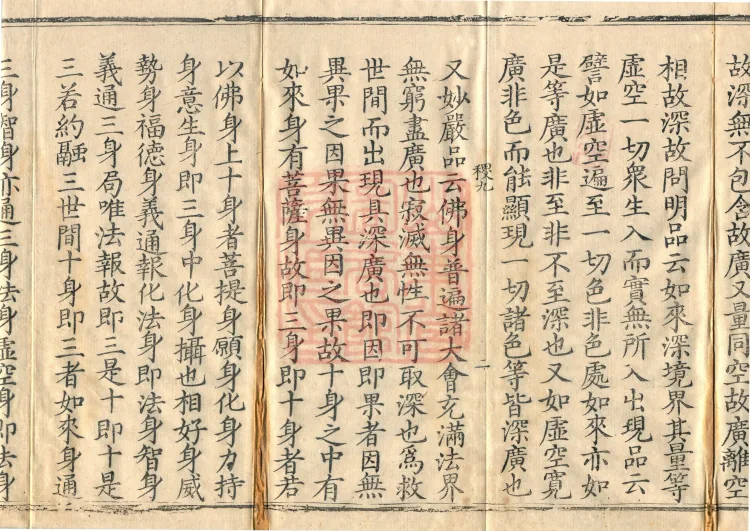 故深無不包含故廣又量同空故廣離空
相故深故問明品云如來深境界其量等
虛空一切衆生入而實無所入出現品云
譬如虛空遍至一切色非色處如來亦如
是等廣也非至非不至深也又如虛空寬
廣非色而能顯現一切諸色等皆深廣也
稷九
二
又妙嚴品云佛身普遍諸大會充滿法界
無窮盡廣也寂滅無性不可取深也爲救
世間而出現具深廣也即因即果者因無
異果之因果無異因之果故十身之中有
如來身有菩薩身故即三身即十身者若
以佛身上十身者菩提身願身化身力持
身意生身即三身中化身攝也相好身威
勢身福德身義通報化法身即法身智身
義通三身局唯法報故即三是十即十是
三若約融三世間十身即三者如來身通
三身智身亦通三身法身虛空身即法身